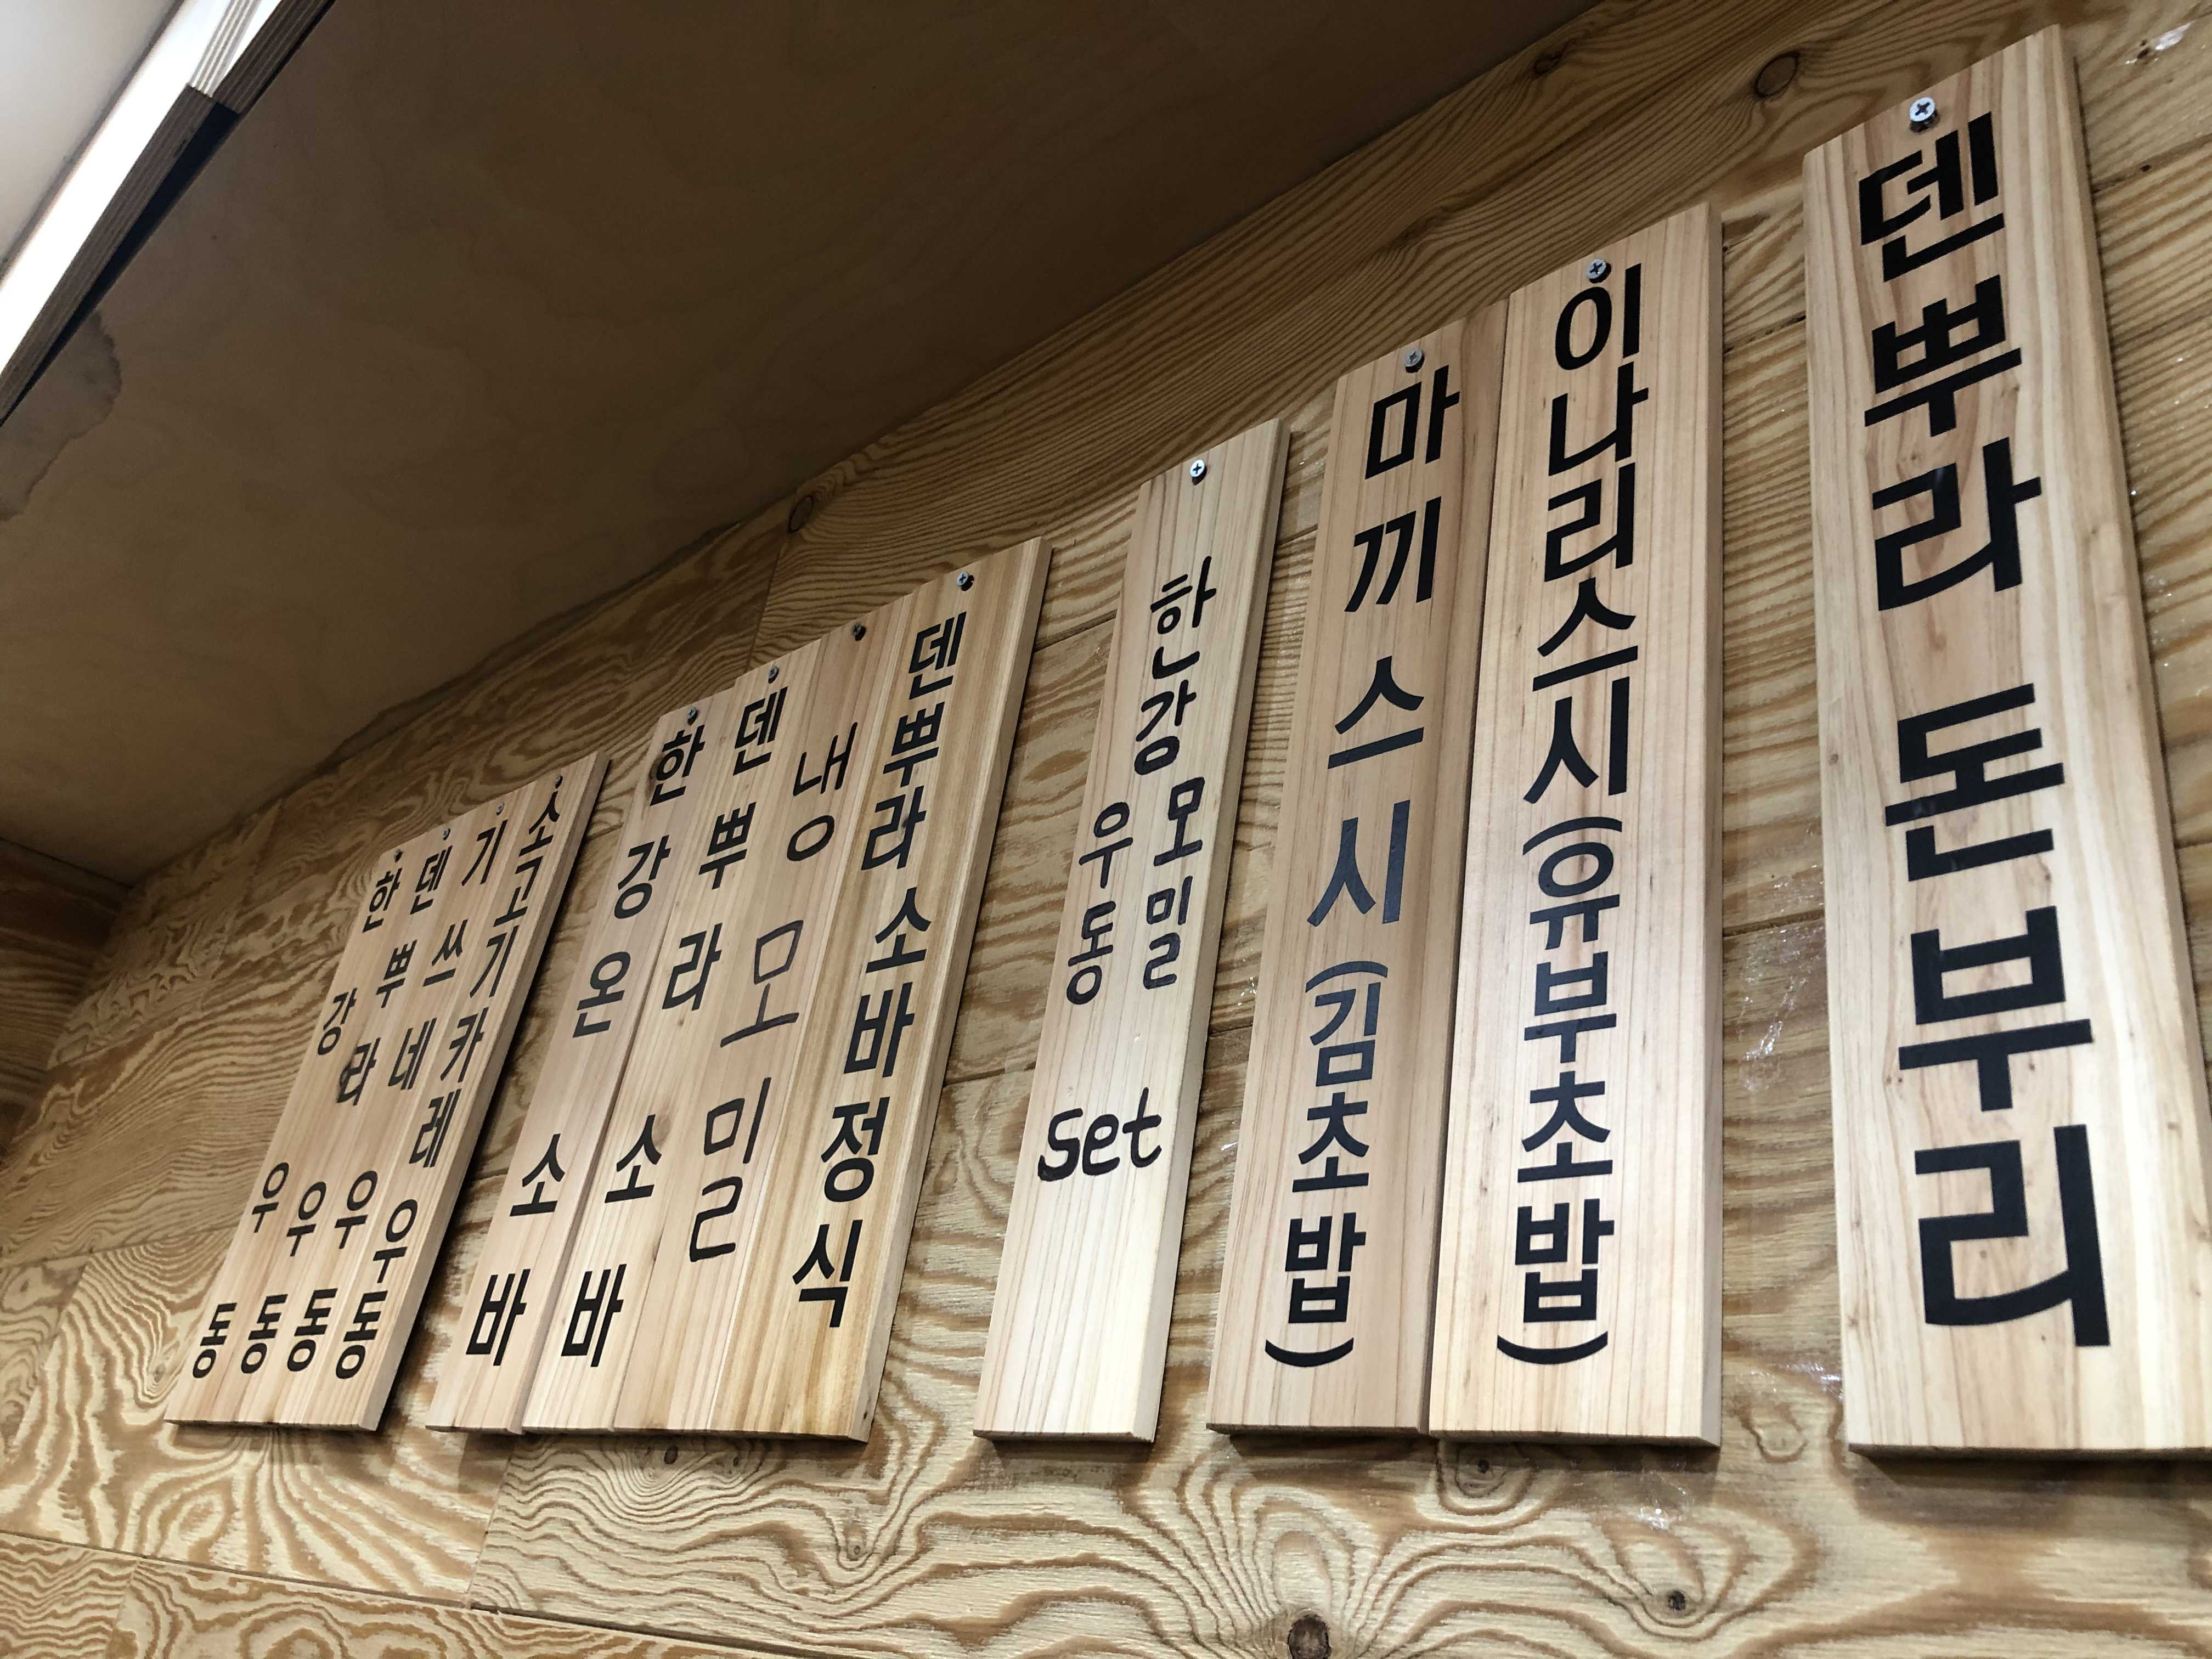 한강우동
덴뿌라우동
기쓰네우동
소고기카레우동
한강온소바
덴뿌라소바
냉모밀
덴뿌라소바정식
한강모밀
우동
set
마끼스시(김초밥)
이나리스시(유부초밥)
덴뿌라 돈부리